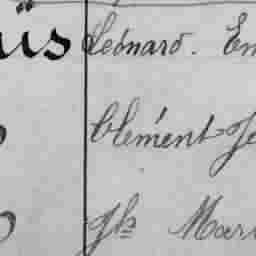 üs Léonard. Em
Clément Je
Jh Mari